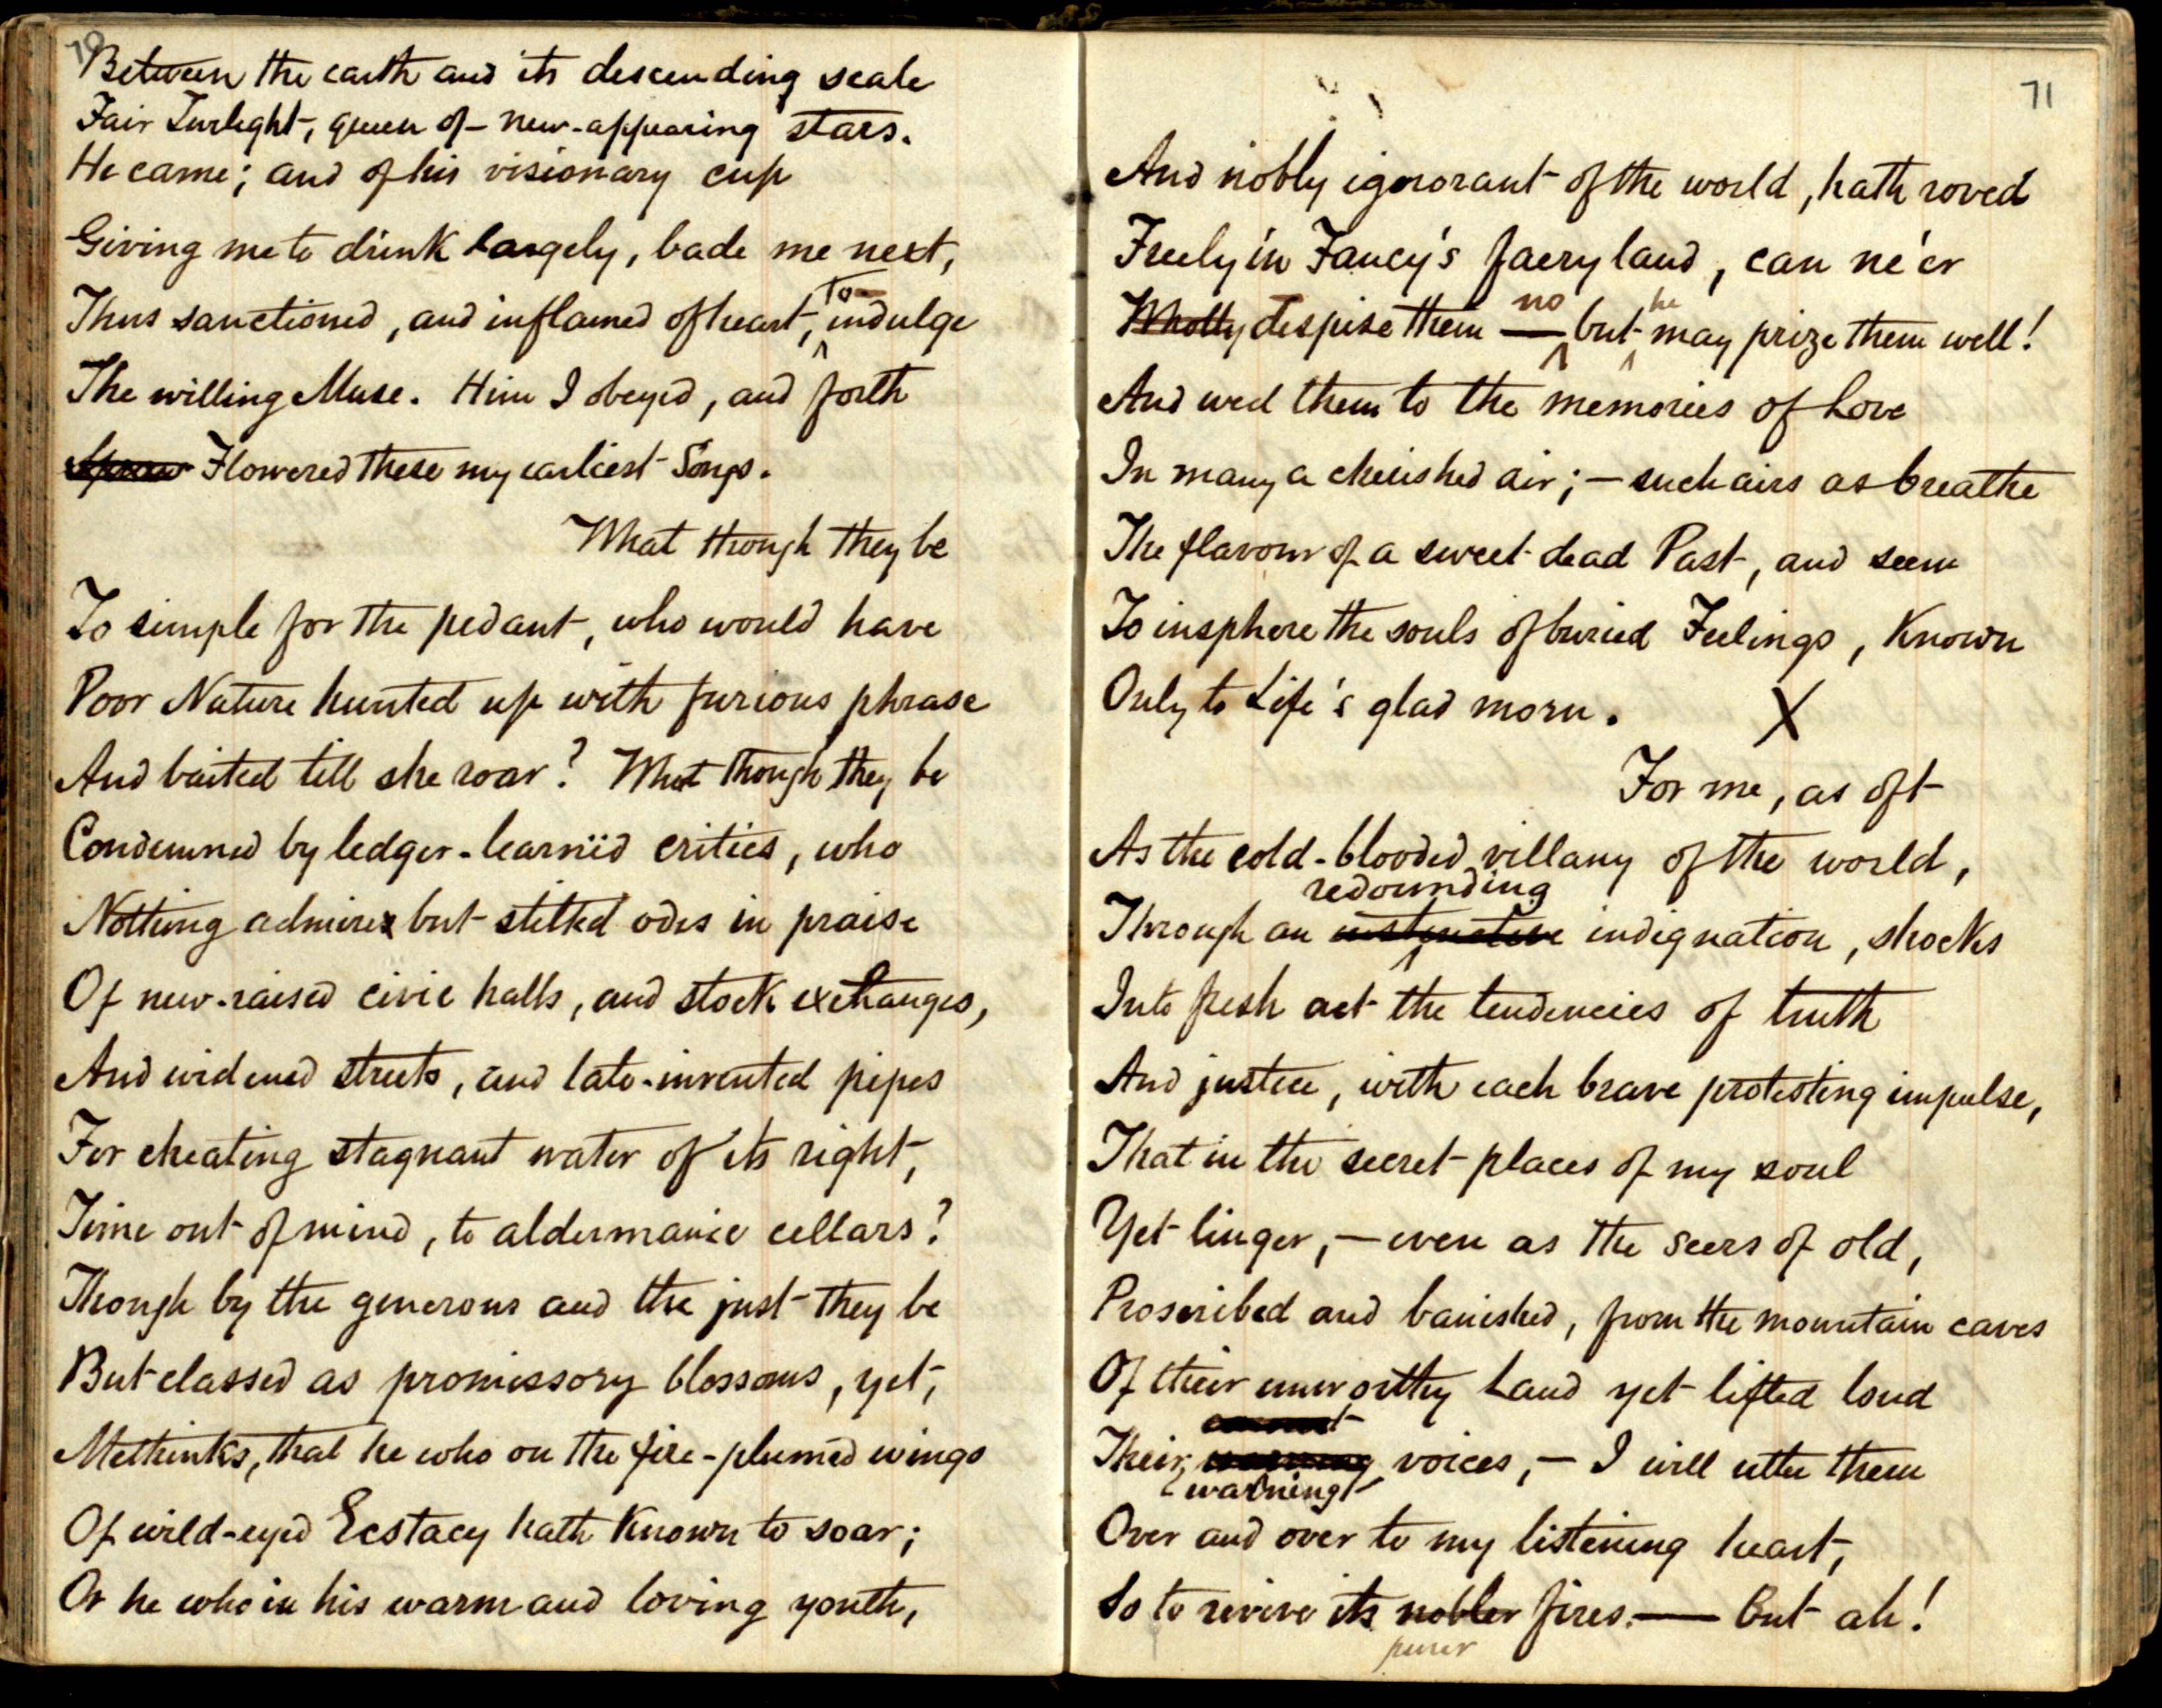 70
Between the earth and its descending scale
Fair Twilight, queen of new-appearing stars.
He came; and of his visionary cup
Giving me to drink largely, bade me next,
To
Thus sanctioned, and inflamed of heart, indulge
The willing Muse. Him I obeyed, and forth
Flowered these my earliest Songs.
What though they be
To simple for the pedant, who would have
Poor Nature hunted up with furious phrase
And baited till she roar? What though they be
Condemned by ledger-learnëd critics, who
Nothing admire but stilted odes in praise
Of new-raised civic halls, and stock exchanges,
And widened streets, and late-invented pipes
For cheating stagnant water of its right,
Time out of mind, to aldermanic cellars?
Though by the generous and the just they be
But classed as promissory blossoms, yet,
Methinks, that he who on the fire-plumed wings
Of wild-eyed Ecstacy hath known to soar;
Or he who in his warm and loving youth,
71
And nobly ignorant of the world, hath roved
Freely in Fancy's faery land, can ne'er
no he
Wholly despise them — but may prize them well!
And wed them to the memories of Love
In many a cherished air; — such airs as breathe
The flavour of a sweet dead Past, and seem
To insphere the souls of buried Feelings, known
Only to Life's glad morn. X
For me, as oft
As the cold-blooded villany of the world,
redounding
Through an instinctive indignation, shocks
Into fresh act the tendencies of truth
And justice, with each brave protesting impulse,
That in the secret places of my soul
Yet linger, — even as the seers of old,
Proscribed and banished, from the mountain caves
Of their unworthy Land yet lifted loud
Their warning voices, — I will utter them
warning
Over and over to my listening heart,
So to revive its nobler fires. — But ah!
purer